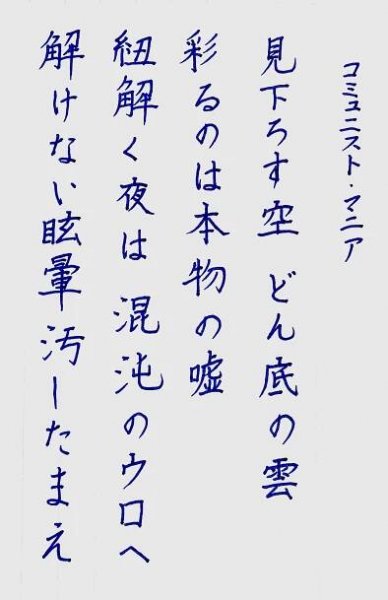 コミュニスト・マニア
見下ろす空 どん底の雲
彩るのは本物の嘘
紐解く夜は 混沌のウロへ
解けない眩暈汚したまえ